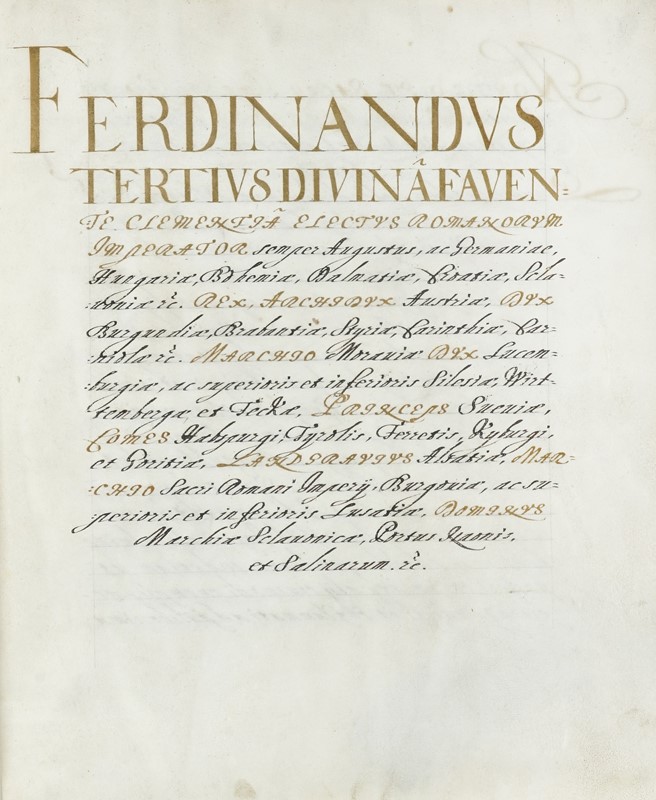 FERDINANDVS
TERTIVS DIVINÂ FAVEN=
TE CLEMENTIÂ ELECTVS ROMANORVM
IMPERATOR semper Augustus, ac Germaniae,
Hungariæ, Bohemiæ, Dalmatiæ, Croatiæ, Scla=
:voniæ ꝛc. REX, ARCHIDVX Austriæ, DVX
Burgundiæ, Brabantiæ, Styriæ, Carinthiæ, Car=
:niolæ ꝛc. MARCHIO Morauiæ DVX Lucem=
:burgiæ, ac superioris et inferioris Silesiæ, Wirt=
:tembergæ et Teckæ, PRINCEPS Sueuiæ,
COMES Habspurgi, Tyrolis, Ferretis, Kyburgi,
et Goritiæ, LANDGRAVIVS Alsatiæ, MAR=
:CHIO Sacri Romani Imperij, Burgoviæ, ac su=
:perioris et inferioris Lusatiæ, DOMINVS
Marchiæ Sclauonicæ, Portus Naonis,
et Salinarum. ꝛc.